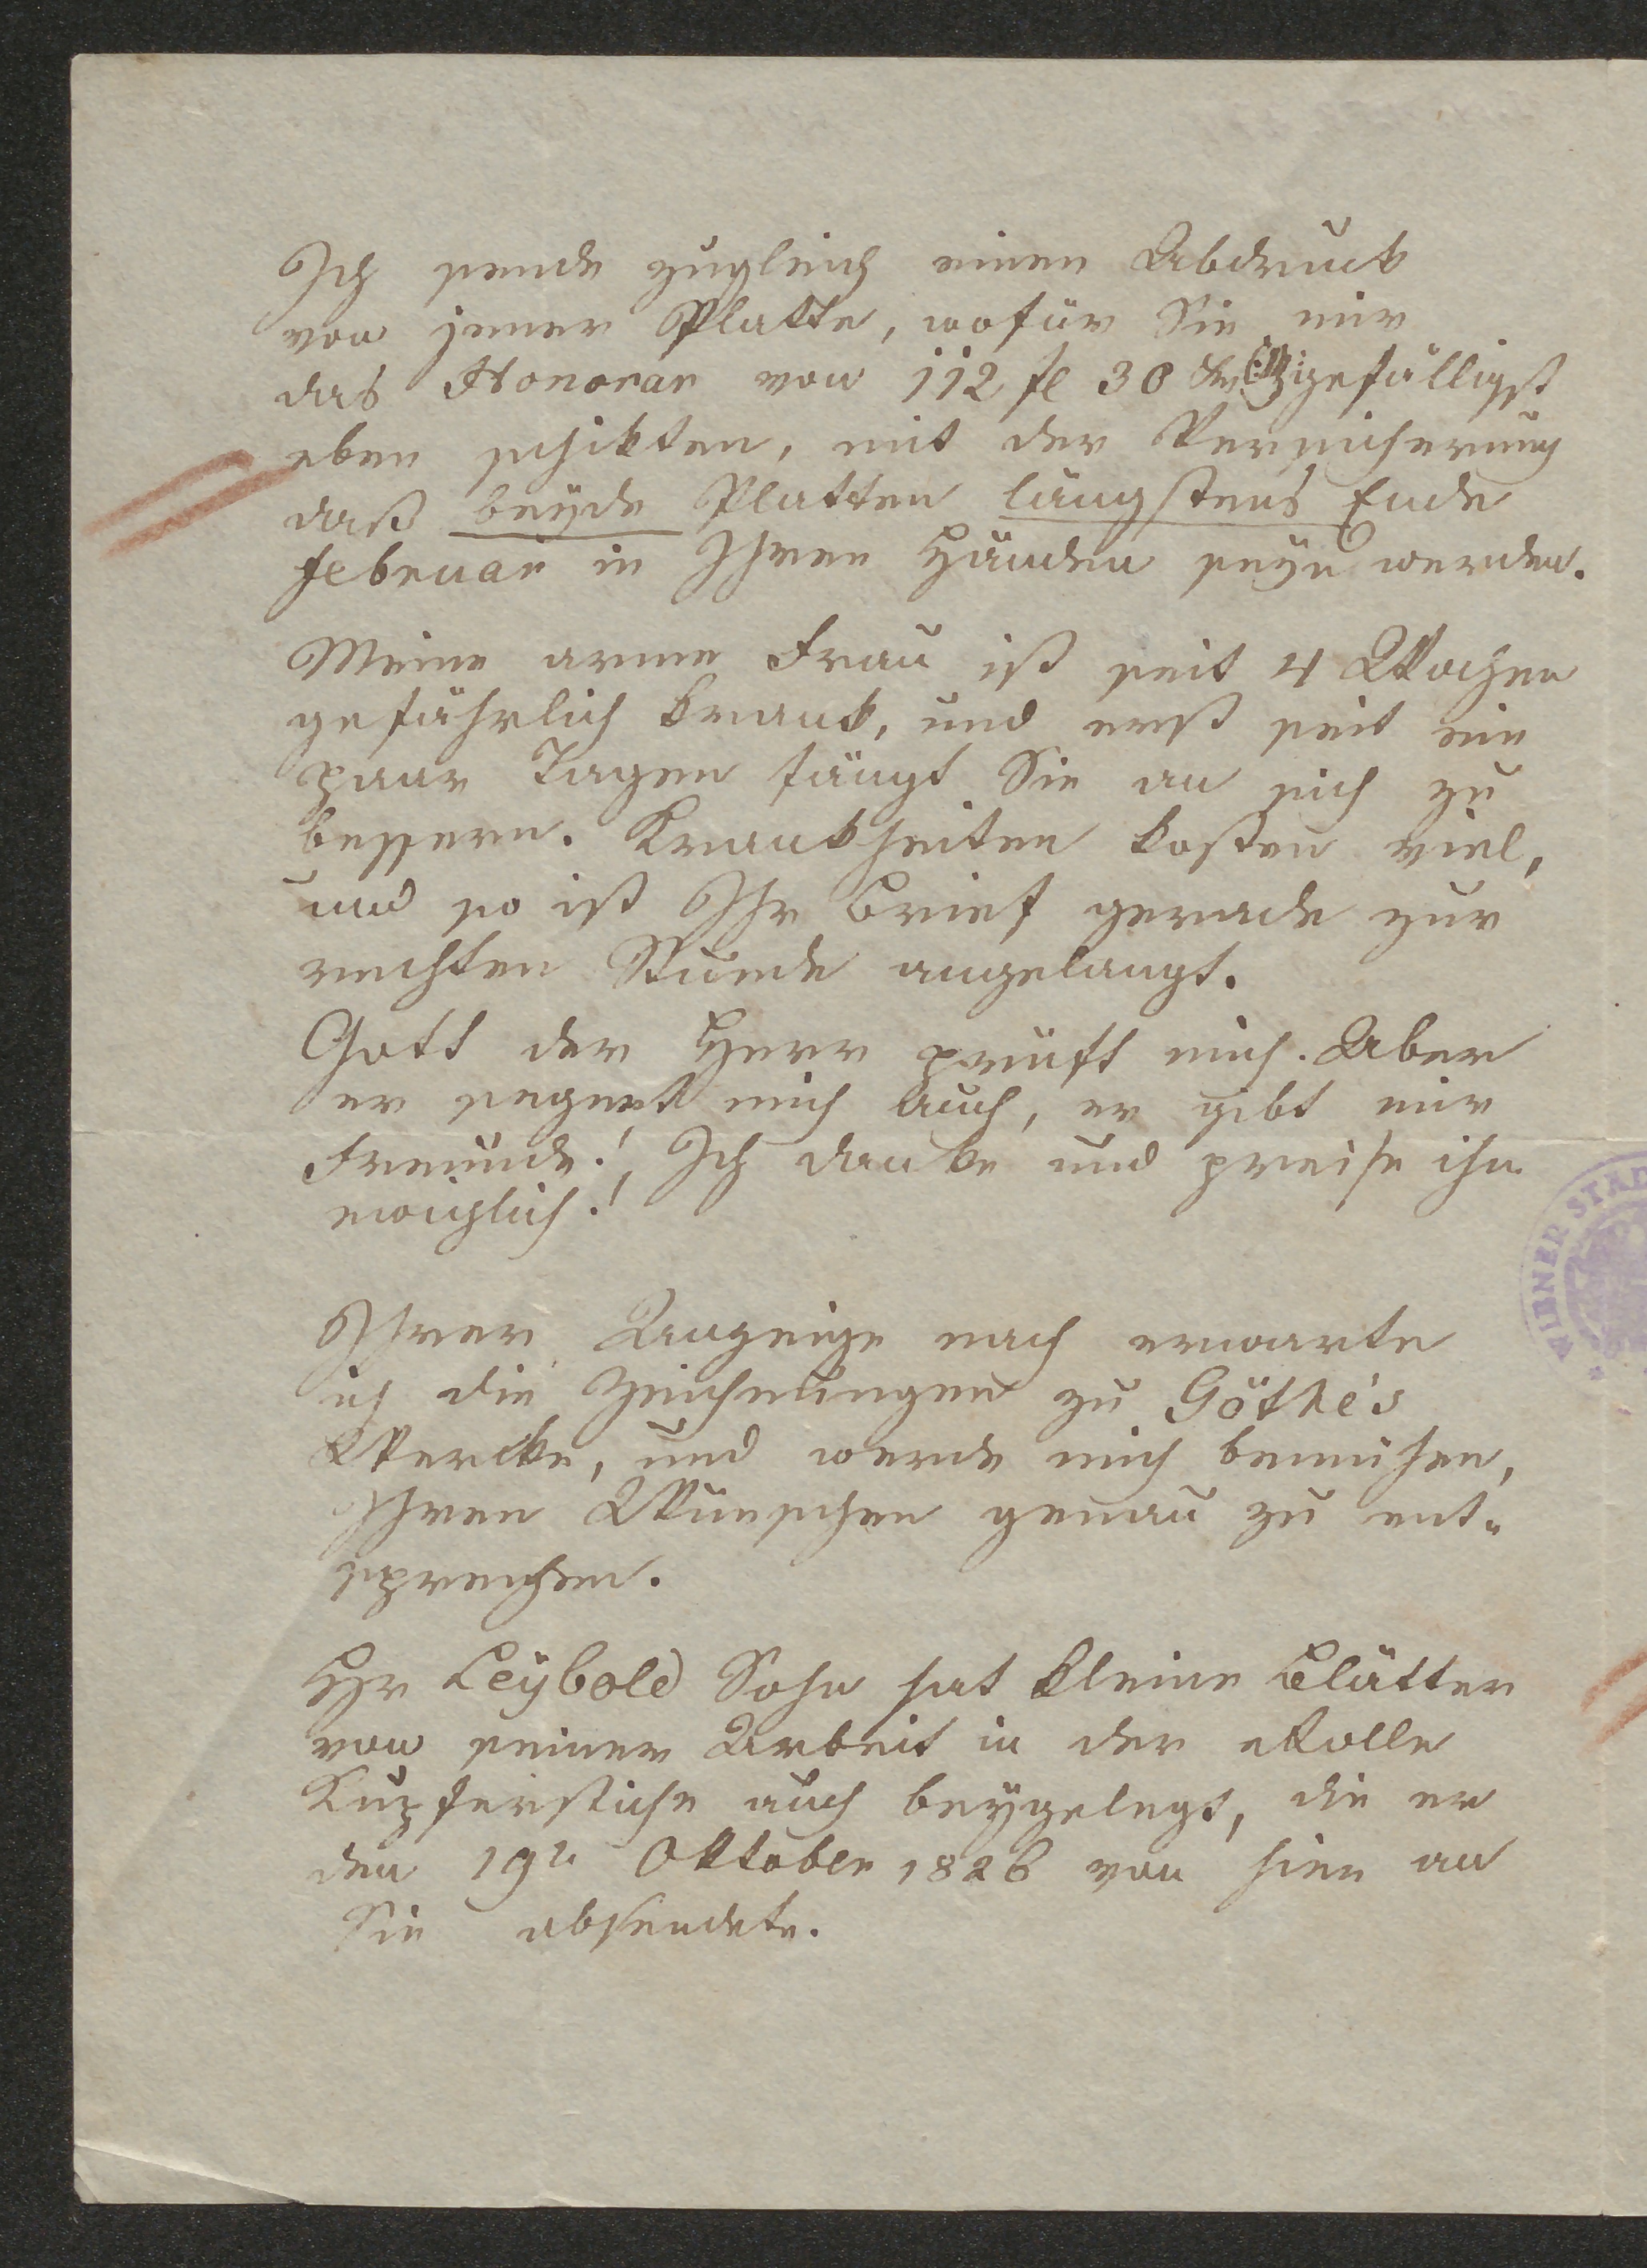 Ich sende zugleich einen Abdruck
von jener Platte, wofür Sie mir
das Honorar von 112 fl 30 Kr gefälligst
eben schikten, mit der Versicherung
daß beyde Platten längstens Ende
Februar in Ihren Händen seyn werden.
Meine arme Frau ist seit 4 Wochen
gefährlich krank, und erst seit ein
paar Tagen fängt Sie an sich zu
bessern. Krankheiten kosten viel,
und so ist Ihr Brief gerade zur
rechten Stunde angelangt.
Gott der Herr prüft mich. Aber
er segnet mich auch, er gibt mir
Freunde! Ich danke und preise ihn
ewiglich!
Ihrer Anzeige nach erwarte
ich die Zeichnungen zu Göthe's
Wercke, und werde mich bemühen,
Ihren Wünschen genau zu ent-
sprechen.
Hr Leybold Sohn hat kleine Blätter
von seiner Arbeit in der Rolle
Kupferstiche auch beygelegt, die er
den 19n Oktober 1826 von hier an
Sie absendete.
WIENER STAD